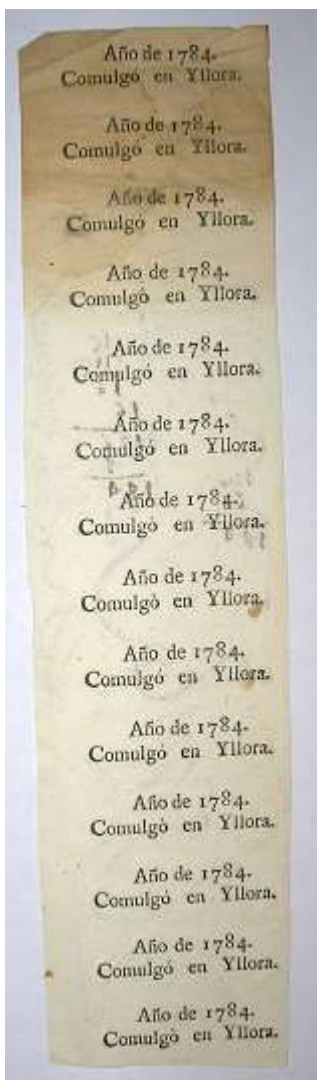 Año de 1784.
Comulgó en Yllora.
Año de 1784.
Comulgó en Yllora.
Año de 1784.
Comulgó en Yllora.
Año de 1784.
Comulgò en Yllora.
Año de 1784.
Comulgó en Yllora.
Año de 1784.
Comulgó en Yllora.
Año de 1784.
Comulgó en Yllora.
Año de 1784.
Comulgò en Yllora.
Año de 1784.
Comulgó en Yllora.
Año de 1784.
Comulgó en Yllora.
Año de 1784.
Comulgò en Yllora.
Año de 1784.
Comulgó en Yllora.
Año de 1784.
Comulgó en Yllora.
Año de 1784.
Comulgò en Yllora.